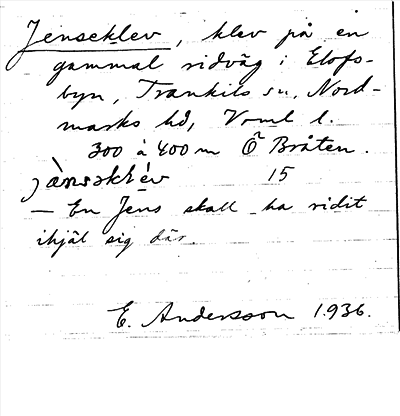 Jenseklev, klev på en
gammal ridväg i Elofs-
byn, Trankils sn, Nord-
marks hd, Vrml l.
300 à 400 m Ö Bråten.
jänsəklév 15
— En Jens skall ha ridit
ihjäl sig där.
E. Andersson 1936.